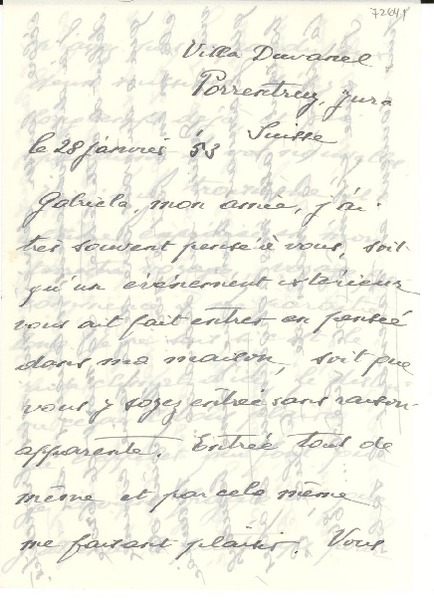 Villa Duvanel
Porrentruy, Jura
Suisse
le 28 janvier 53
Gabriela, mon amie, j'ai
très souvent pensé à vous, soit
qu'un événement extérieur
vous ait fait entrer en pensée
dans ma maison, soit que
vous y soyez entrée sans raison
apparente. Entrée tout de
même et par cela même
me faisant plaisir. Vous